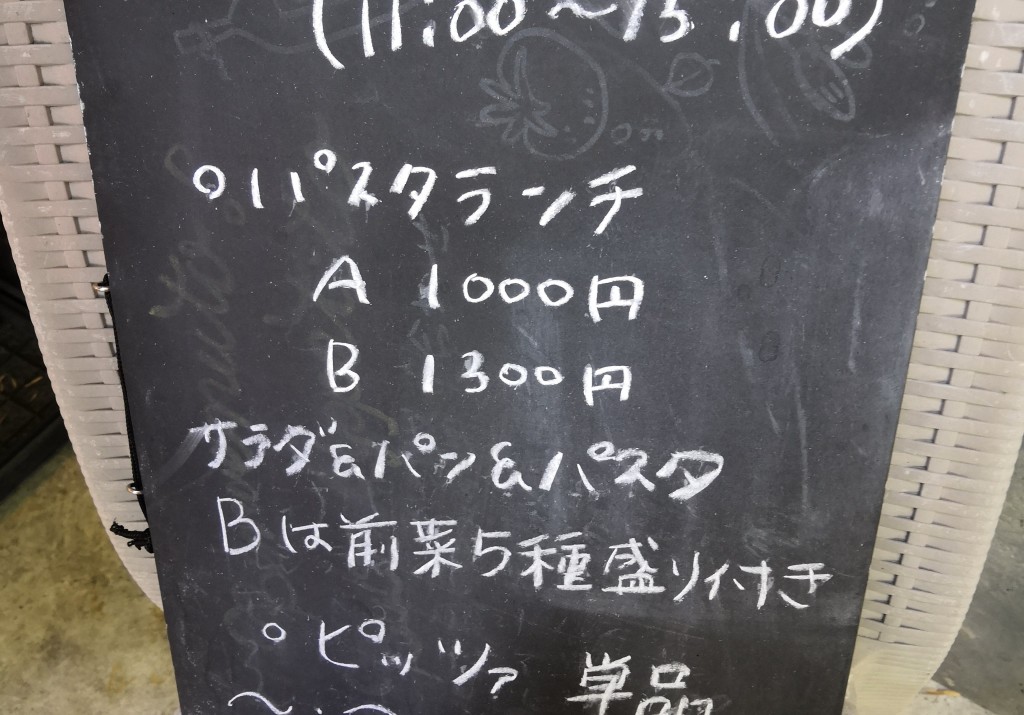 (11:00〜15:00)
○パスタランチ
A 1000円
B 1300円
サラダ&パン&パスタ
Bは前菜5種盛り付き
○ピッツァ 単品